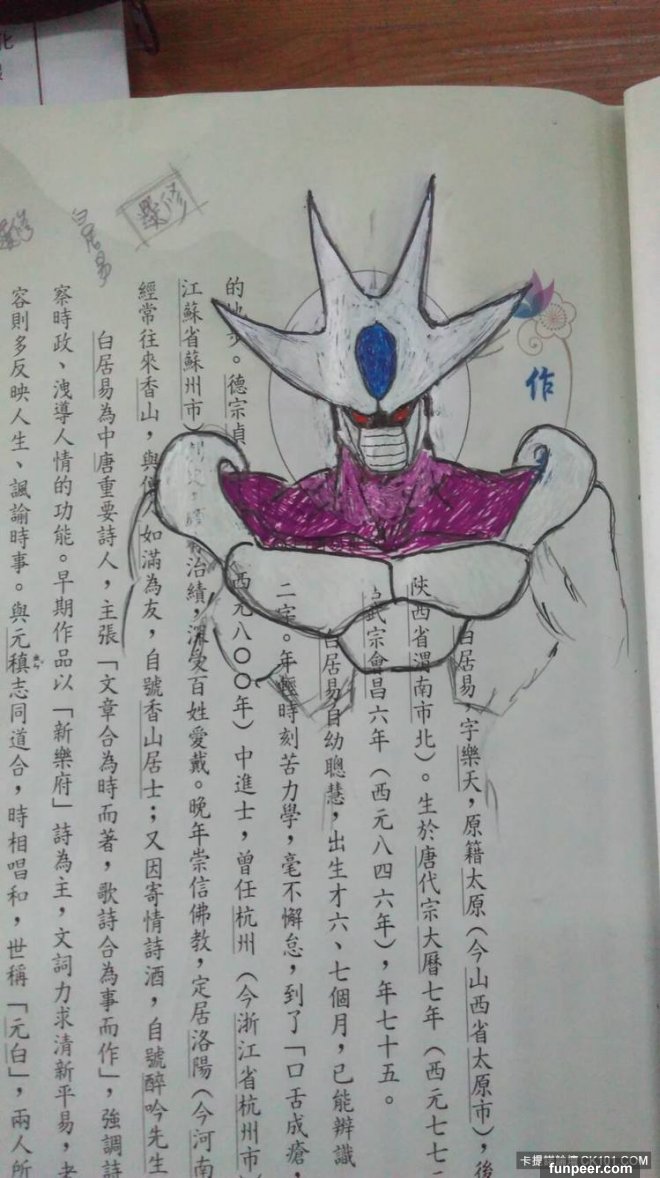 作
白居易，字樂天，原籍太原（今山西省太原市），後
陝西省渭南市北）。生於唐代宗大曆七年（西元七七二
武宗會昌六年（西元八四六年），年七十五。
白居易自幼聰慧，出生才六、七個月，已能辦識
二字。年輕時刻苦力學，毫不懈怠，到了「口舌成瘡，
的地步。德宗貞 西元八〇〇年）中進士，曾任杭州（今浙江省杭州市
江蘇省蘇州市） 治績，深受百姓愛戴。晚年崇信佛教，定居洛陽（今河南
經常往來香山，與 如滿為友，自號香山居士；又因寄情詩酒，自號醉吟先生
白居易為中唐重要詩人，主張「文章合為時而著，歌詩合為事而作」，強調詩
察時政、洩導人情的功能。早期作品以「新樂府」詩為主，文詞力求清新平易，老
容則多反映人生、諷諭時事。與元稹志同道合，時相唱和，世稱「元白」，兩人所
白居易
卡提諾論壇 CK101.COM
funpeer.com